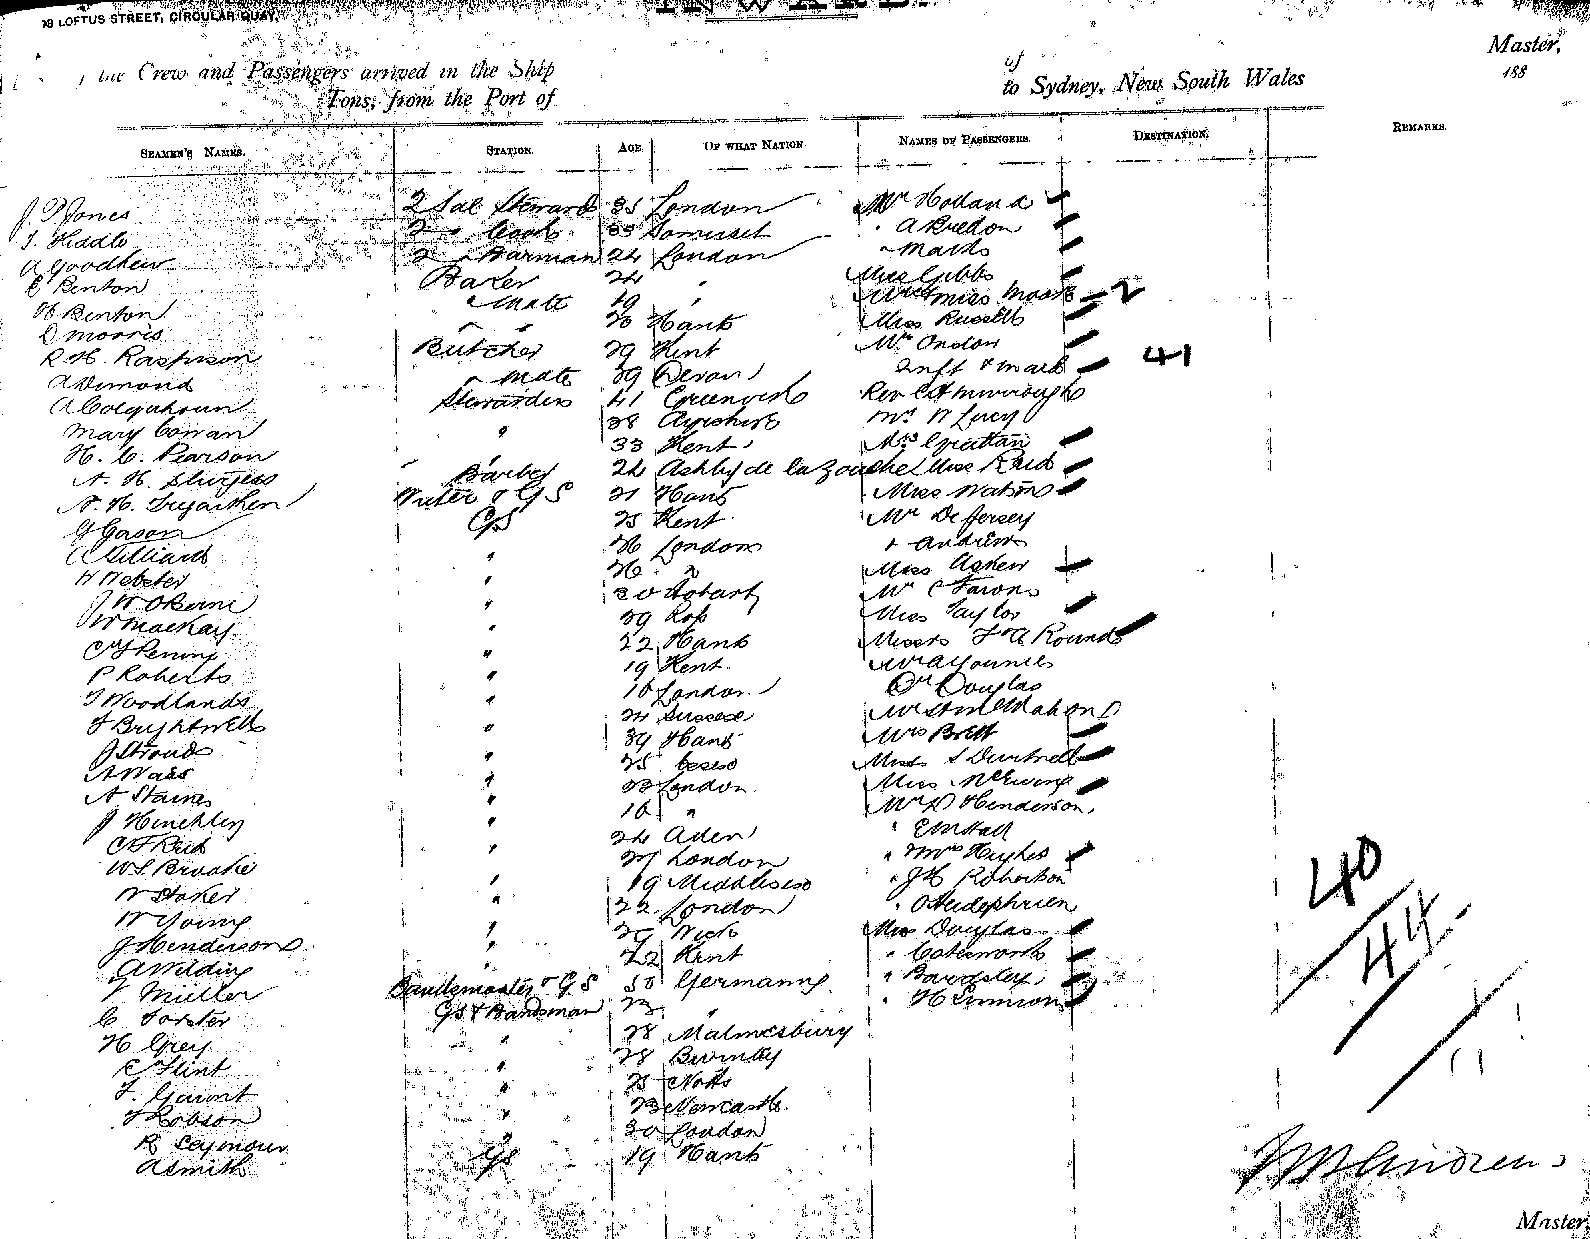 28 LOFTUS STREET, CIRCULAR QUAY,
INWARD.
Master,
the Crew and Passengers arrived in the Ship of 188
Tons, from the Port of to Sydney, New South Wales
SEAMEN'S NAMES. STATION. AGE OF WHAT NATION. NAMES OF PASSENGERS. DESTINATION. REMARKS.
Jones 2 Sal Steward 35 London Mr Holland
2 " Cook 33 Somerset " A Bredon
A Goodhew 2 " Barman 24 London " Marks
E Benton Baker 24 " Miss Gibbs
H Benton " Mate 19 " Miss Moore 2
D Morris " " 20 Hants Miss Russell
R. H. Raspison Butcher 29 Kent Mr Onslow
A Dimond " Mate 39 Devon Inft & maid 41
A Colquhoun Stewardess 41 Greenwich Rev
Mary Cowan " 38 Ayrshire Mr W Lucy
H. C. Pearson " 33 Kent Mrs Grattan
A. H. Sturgess Barber 24 Ashby de la Zouche Miss Reid
A. H. Tregarthen Writer & GS 21 Hants Miss Watson
G Cason GS 25 Kent Mr De Jersey
C Gilliard " 26 London " Andrew
H Webster " 26 " Miss Askew
J W OBeirne " 20 Hobart Mr C
W Mackay " 29 Ross Miss Taylor
" 22 Hants Messrs F & A Rounds
P Roberts " 19 Kent
T Woodlands " 16 London Dr Douglas
F Brightwell " 24 Sussex
J Stroud " 39 Hants Mrs Brett
A Wass " 25 Essex Miss S
A Staines " 23 London Miss McEwing
J Hinchley " 16 " Mr D Henderson
C F Reid " 24 Aden "
W S Brooke " 27 London " Mrs Hughes
W Stoker " 19 Middlesex " J H Robertson
W Young " 22 London "
J Henderson " 29 Wick Miss Douglas
A Wilding " 22 Kent "
F Muller Bandmaster & GS 50 Germany " Bardsley
C Forster GS & Bandsman 23 " " H
H Grey " 28 Malmesbury
C Flint " 28 Burnley
F. Gaunt " 25 Notts
T Robson " 23 Newcastle
R Seymour " 30 London
A Smith GS 19 Hants
40
44
11
Andrews
Master,